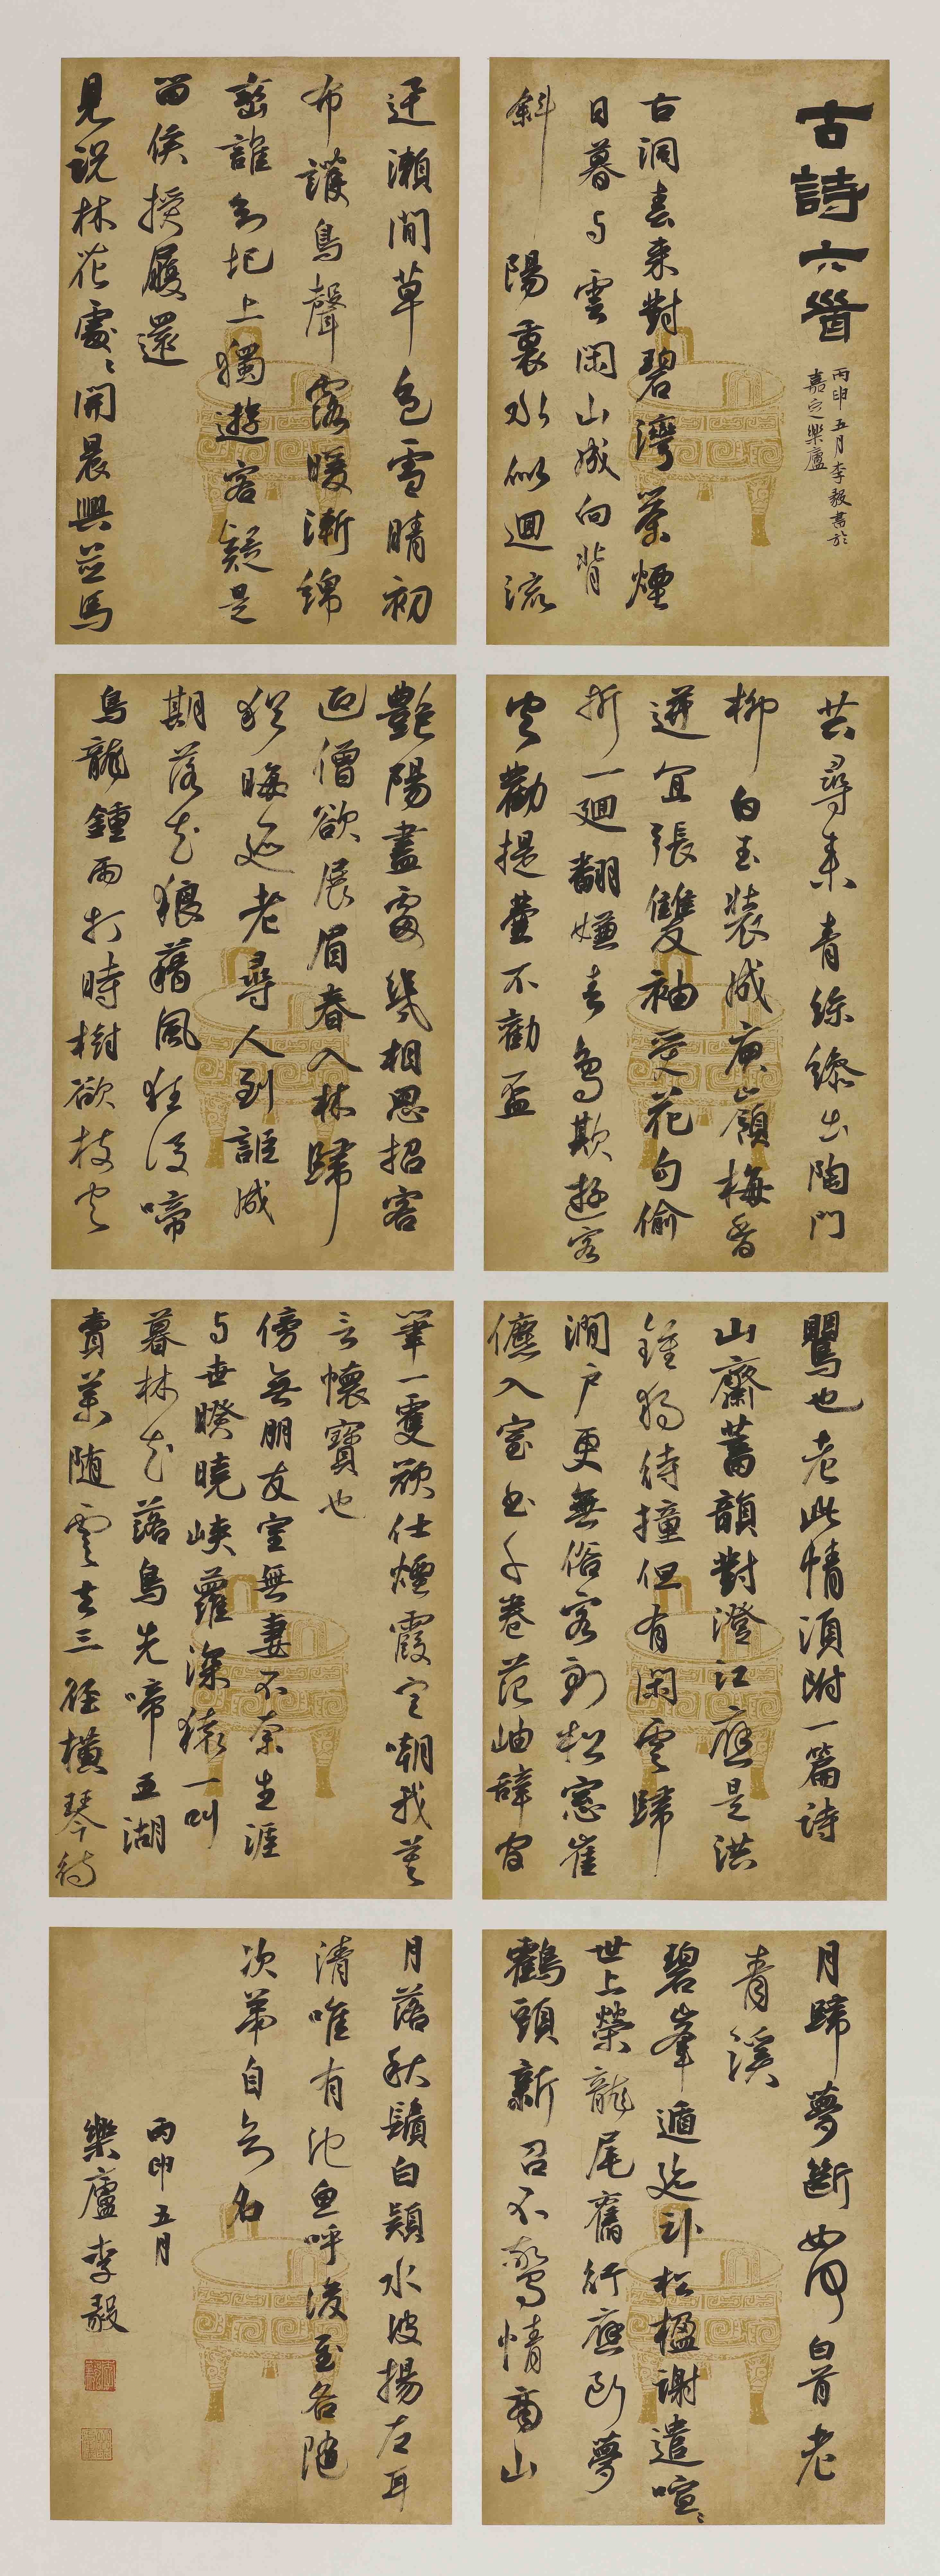 古詩六首
丙申五月李毅書於
嘉定樂廬
古洞春來對碧灣茶煙
日暮与雲閑山城向背
斜陽裏水似迴流
迂瀨間草色雪晴初
布護鳥聲露暖漸綿
蠻誰知圯上獨遊客疑是
留侯授履還
見說林花處〻開晨興並馬
共尋來青絲繰出陶門
柳白玉裝成庾嶺梅香
迸宜張雙袖受花句偷
折一迴翻嫌春鳥欺遊客
空勸提壷不勸盃
艷陽盡處幾相思招客
迎僧欲展眉春入林歸
猶晦迹老尋人到詎成
期落花狼藉風狂後啼
鳥龍鍾雨打時樹欲枝空
鸎也老此情須附一篇詩
山齋蓄韻對澄江應是洪
鍾猶待撞但有閑雲歸
澗戶更無俗客到松窓崔
儦入室書千卷范岫辭官
筆一雙欲仕煙霞定嘲我莫
言懷寶也
傍無朋友室無妻不奈生涯
与世暌曉峽蘿深猿一叫
暮林花落鳥先啼五湖
賣藥隨雲去三徑橫琴待
月歸夢斷如何白首老
青溪
碧峯遁迹卧松楹謝遣喧〻
世上榮龍尾舊行應斷夢
鶴頭新召不驚情商山
月落秋鬚白潁水波揚左耳
清唯有池魚呼後至各隨
次第自知名
丙申五月
樂廬李毅